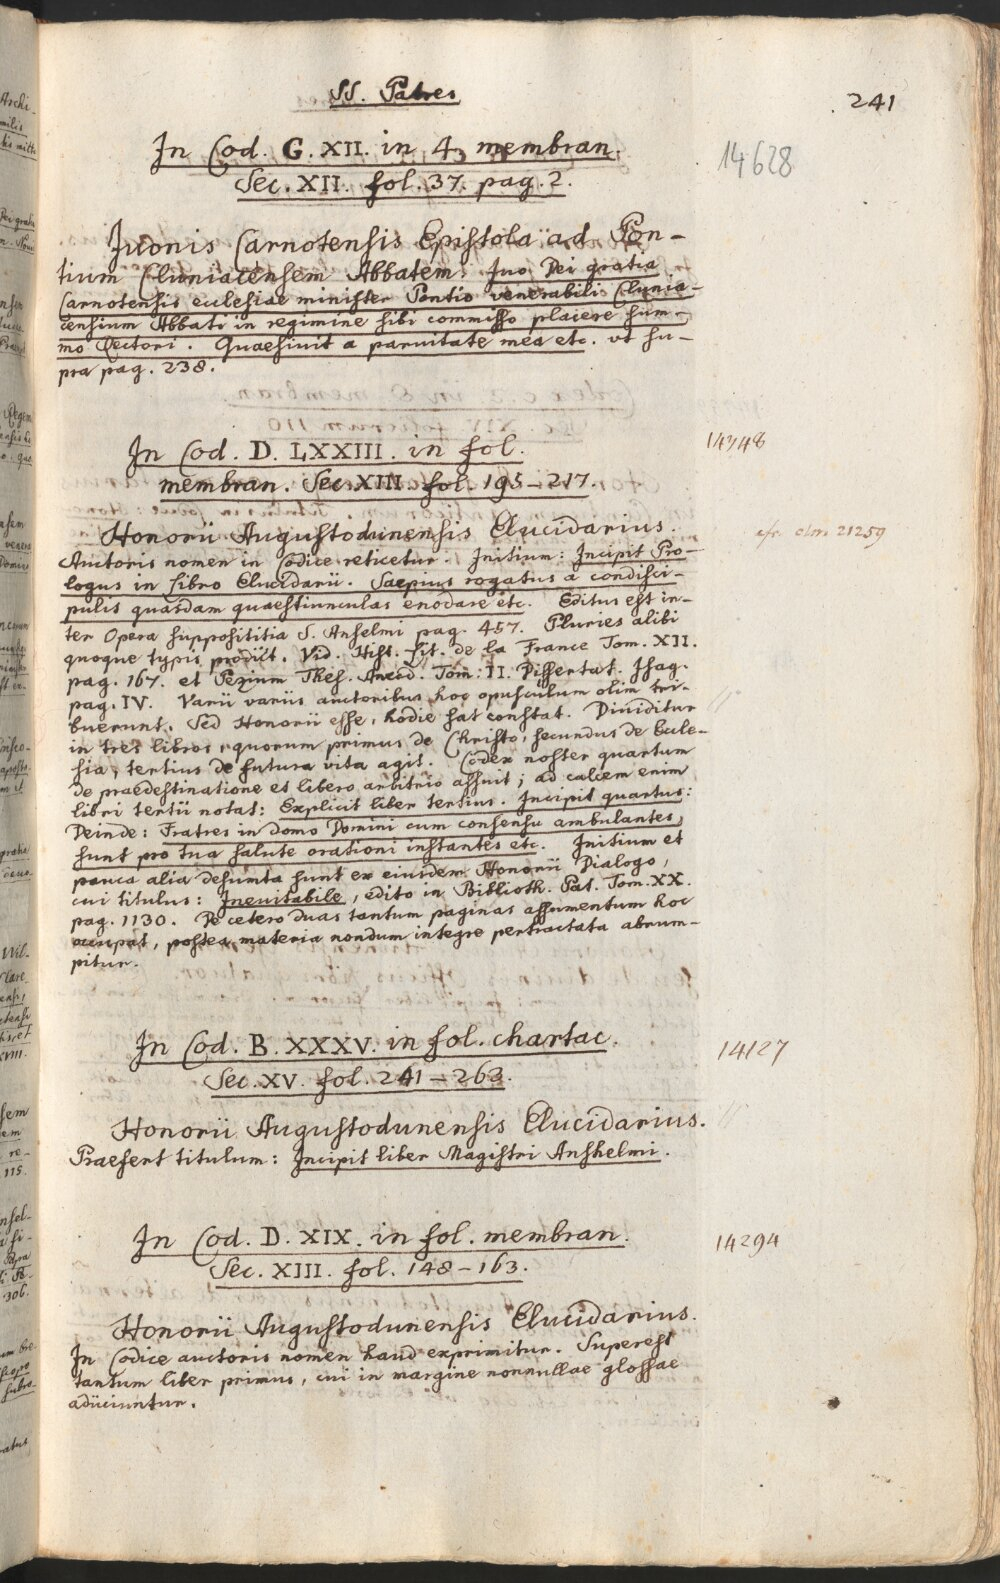 SS. Patres
241
In Cod. G. XII. in 4. membran.
14628
Sec. XII. fol. 37. pag. 2.
Iuonis Carnotensis Epistola ad Pon-
tium Cluniacensem Abbatem. Iuo Dei gratia
Carnotensis ecclesiae minister Pontio venerabili Clunia-
censium Abbati in regimine sibi commisso placere sum-
mo Rectori. Quaesiuit a paruitate mea etc. vt su-
pra pag. 238.
In Cod. D. LXXIII. in fol.
14348
membran. Sec. XIII. fol. 195-217.
Honorii Augustodunensis Elucidarius.
cfr. clm 21259
Auctoris nomen in Codice reticetur. Initium: Incipit Pro-
logus in Libro Elucidarii. Saepius rogatus a condisci-
pulis quasdam quaestiunculas enodare etc. Editus est in-
ter Opera supposititia S. Anselmi pag. 457. Pluries alibi
quoque typis prodiit. Vid. Hist. Lit. de la France Tom. XII.
pag. 167. et Pezium Thes. Anecd. Tom. II. Dissertat. Isag.
pag. IV. Varii variis auctoribus hoc opusculum olim tri-
buerunt. Sed Honorii esse, hodie sat constat. Diuiditur
in tres libros, quorum primus de Christo, secundus de Eccle-
sia, tertius de futura vita agit. Codex noster quartum
de praedestinatione et libero arbitrio assuit; ad calcem enim
libri tertii notat: Explicit liber tertius. Incipit quartus:
Deinde: Fratres in domo Domini cum consensu ambulantes,
sunt pro tua salute orationi instantes etc. Initium et
pauca alia desumta sunt ex eiusdem Honorii Dialogo,
cui titulus: Ineuitabile, edito in Biblioth. Pat. Tom. XX.
pag. 1130. De cetero duas tantum paginas assumentum hoc
occupat, postea materia nondum integre pertractata abrum-
pitur.
In Cod. B. XXXV. in fol. chartac.
14127
Sec. XV. fol. 241-263.
Honorii Augustodunensis Elucidarius.
Praefert titulum: Incipit liber Magistri Anshelmi.
In Cod. D. XIX. in fol. membran.
14294
Sec. XIII. fol. 148-163.
Honorii Augustodunensis Elucidarius.
In Codice auctoris nomen haud exprimitur. Superest
tantum liber primus, cui in margine nonnullae glossae
adiiciuntur.